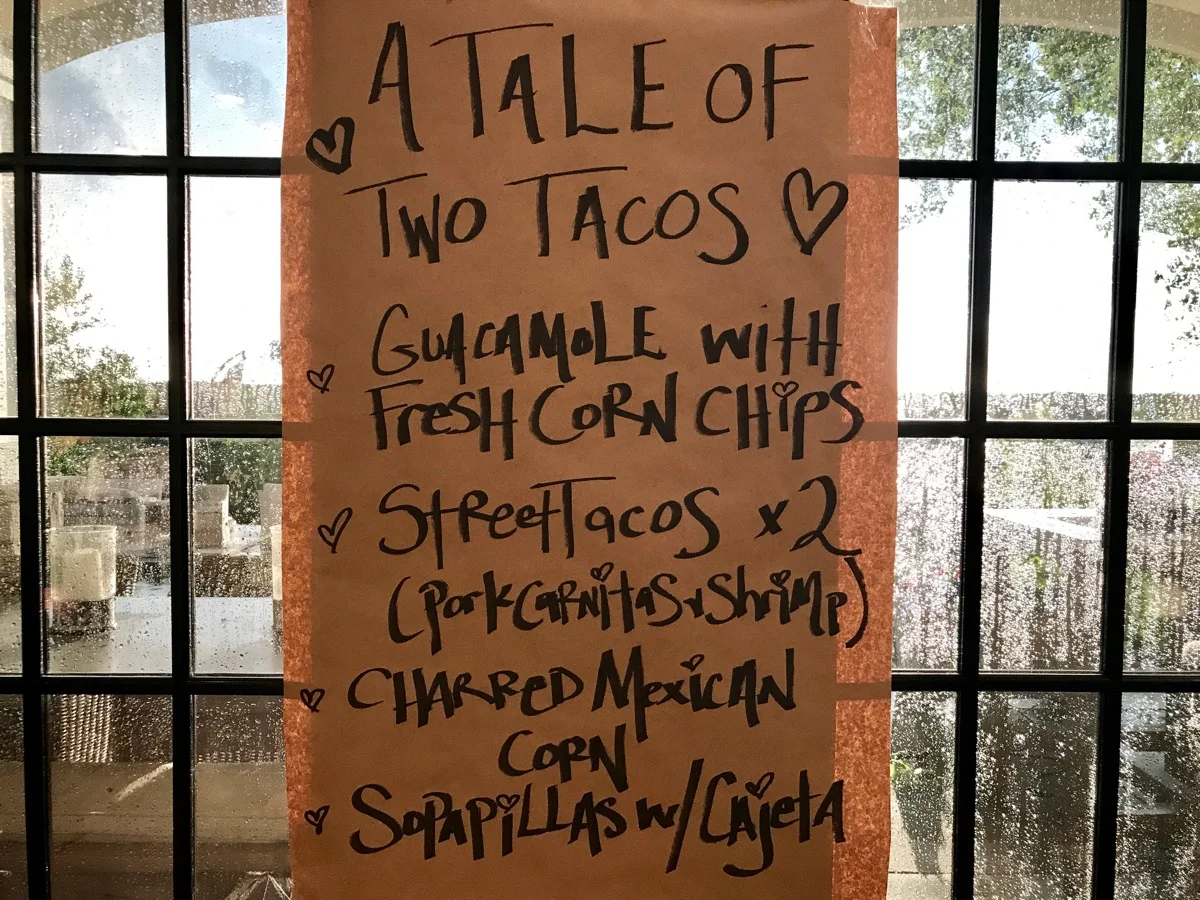 A TALE OF
TWO TACOS
GUACAMOLE WITH
FRESH CORN CHIPS
STREET TACOS x 2
(PORK CARNITAS & SHRIMP)
CHARRED MEXICAN
CORN
SOPAPILLAS W/ CAJETA